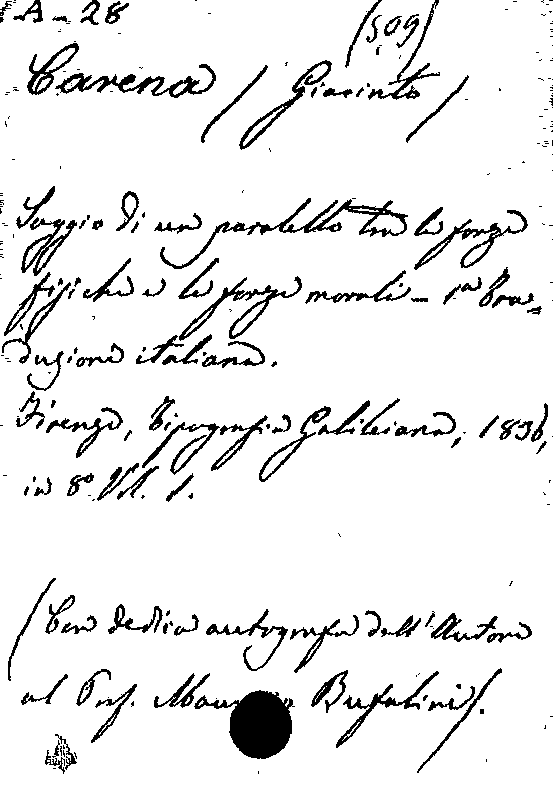 A - 28
(509)
Carena / Giacinto /
Saggio di un parallelo tra le forze
fisiche e le forze morali - 1ª Tra=
duzione italiana.
Firenze, Tipografia Galileiana, 1836,
in 8º Vol. 1.
(Con dedica autografa dell'Autore
al Prof. Bufalini).